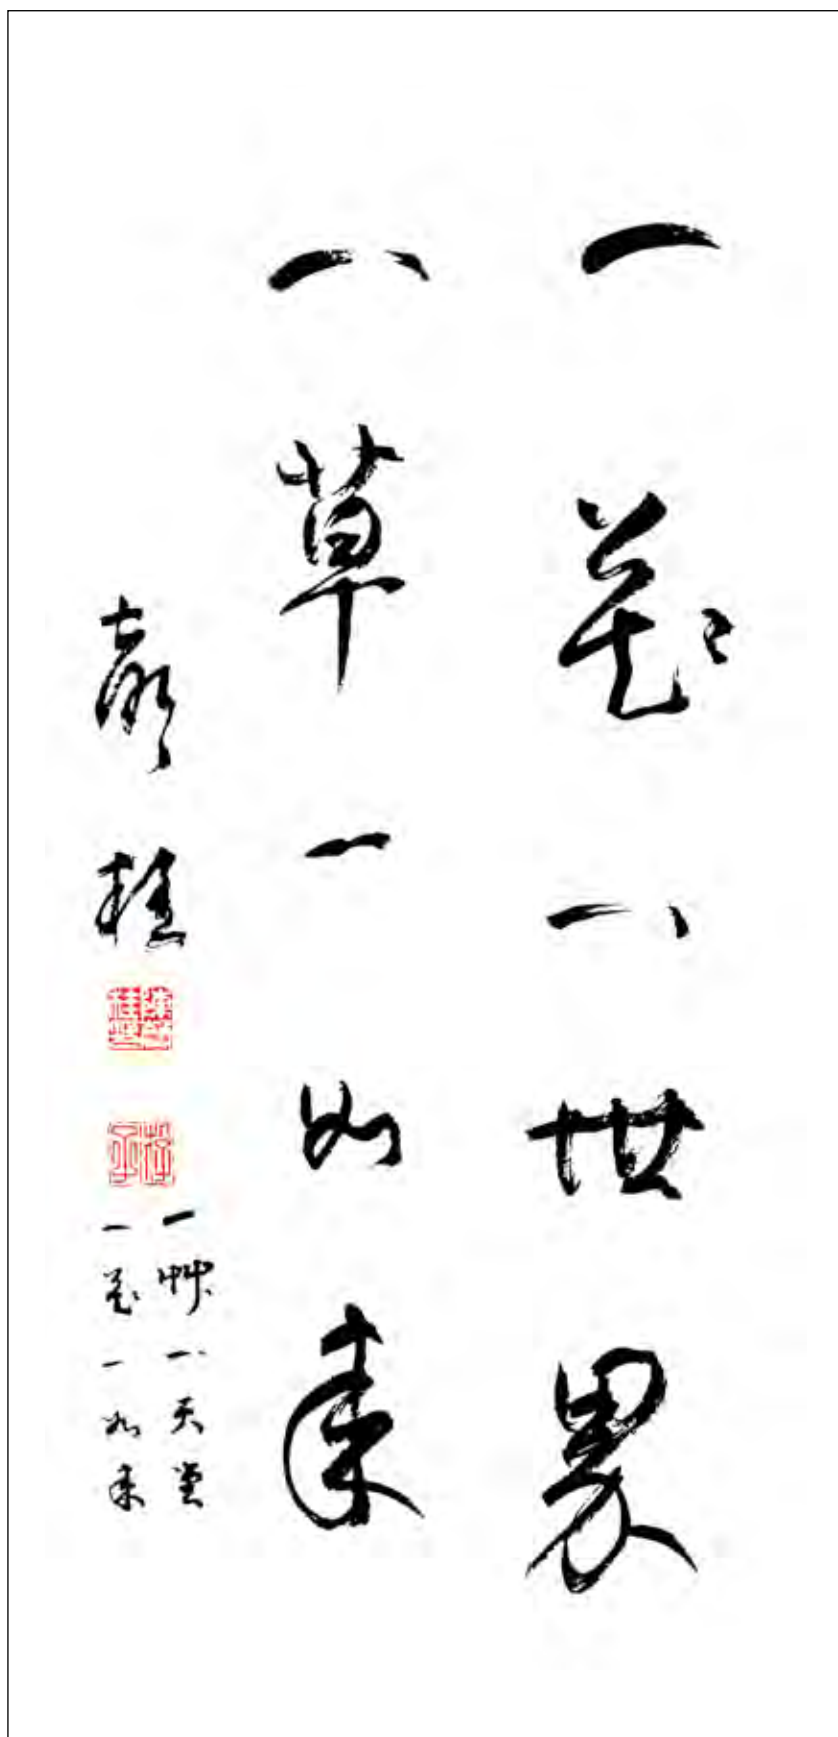 一花一世界
一草一如来
一艸一天堂
一花一如来